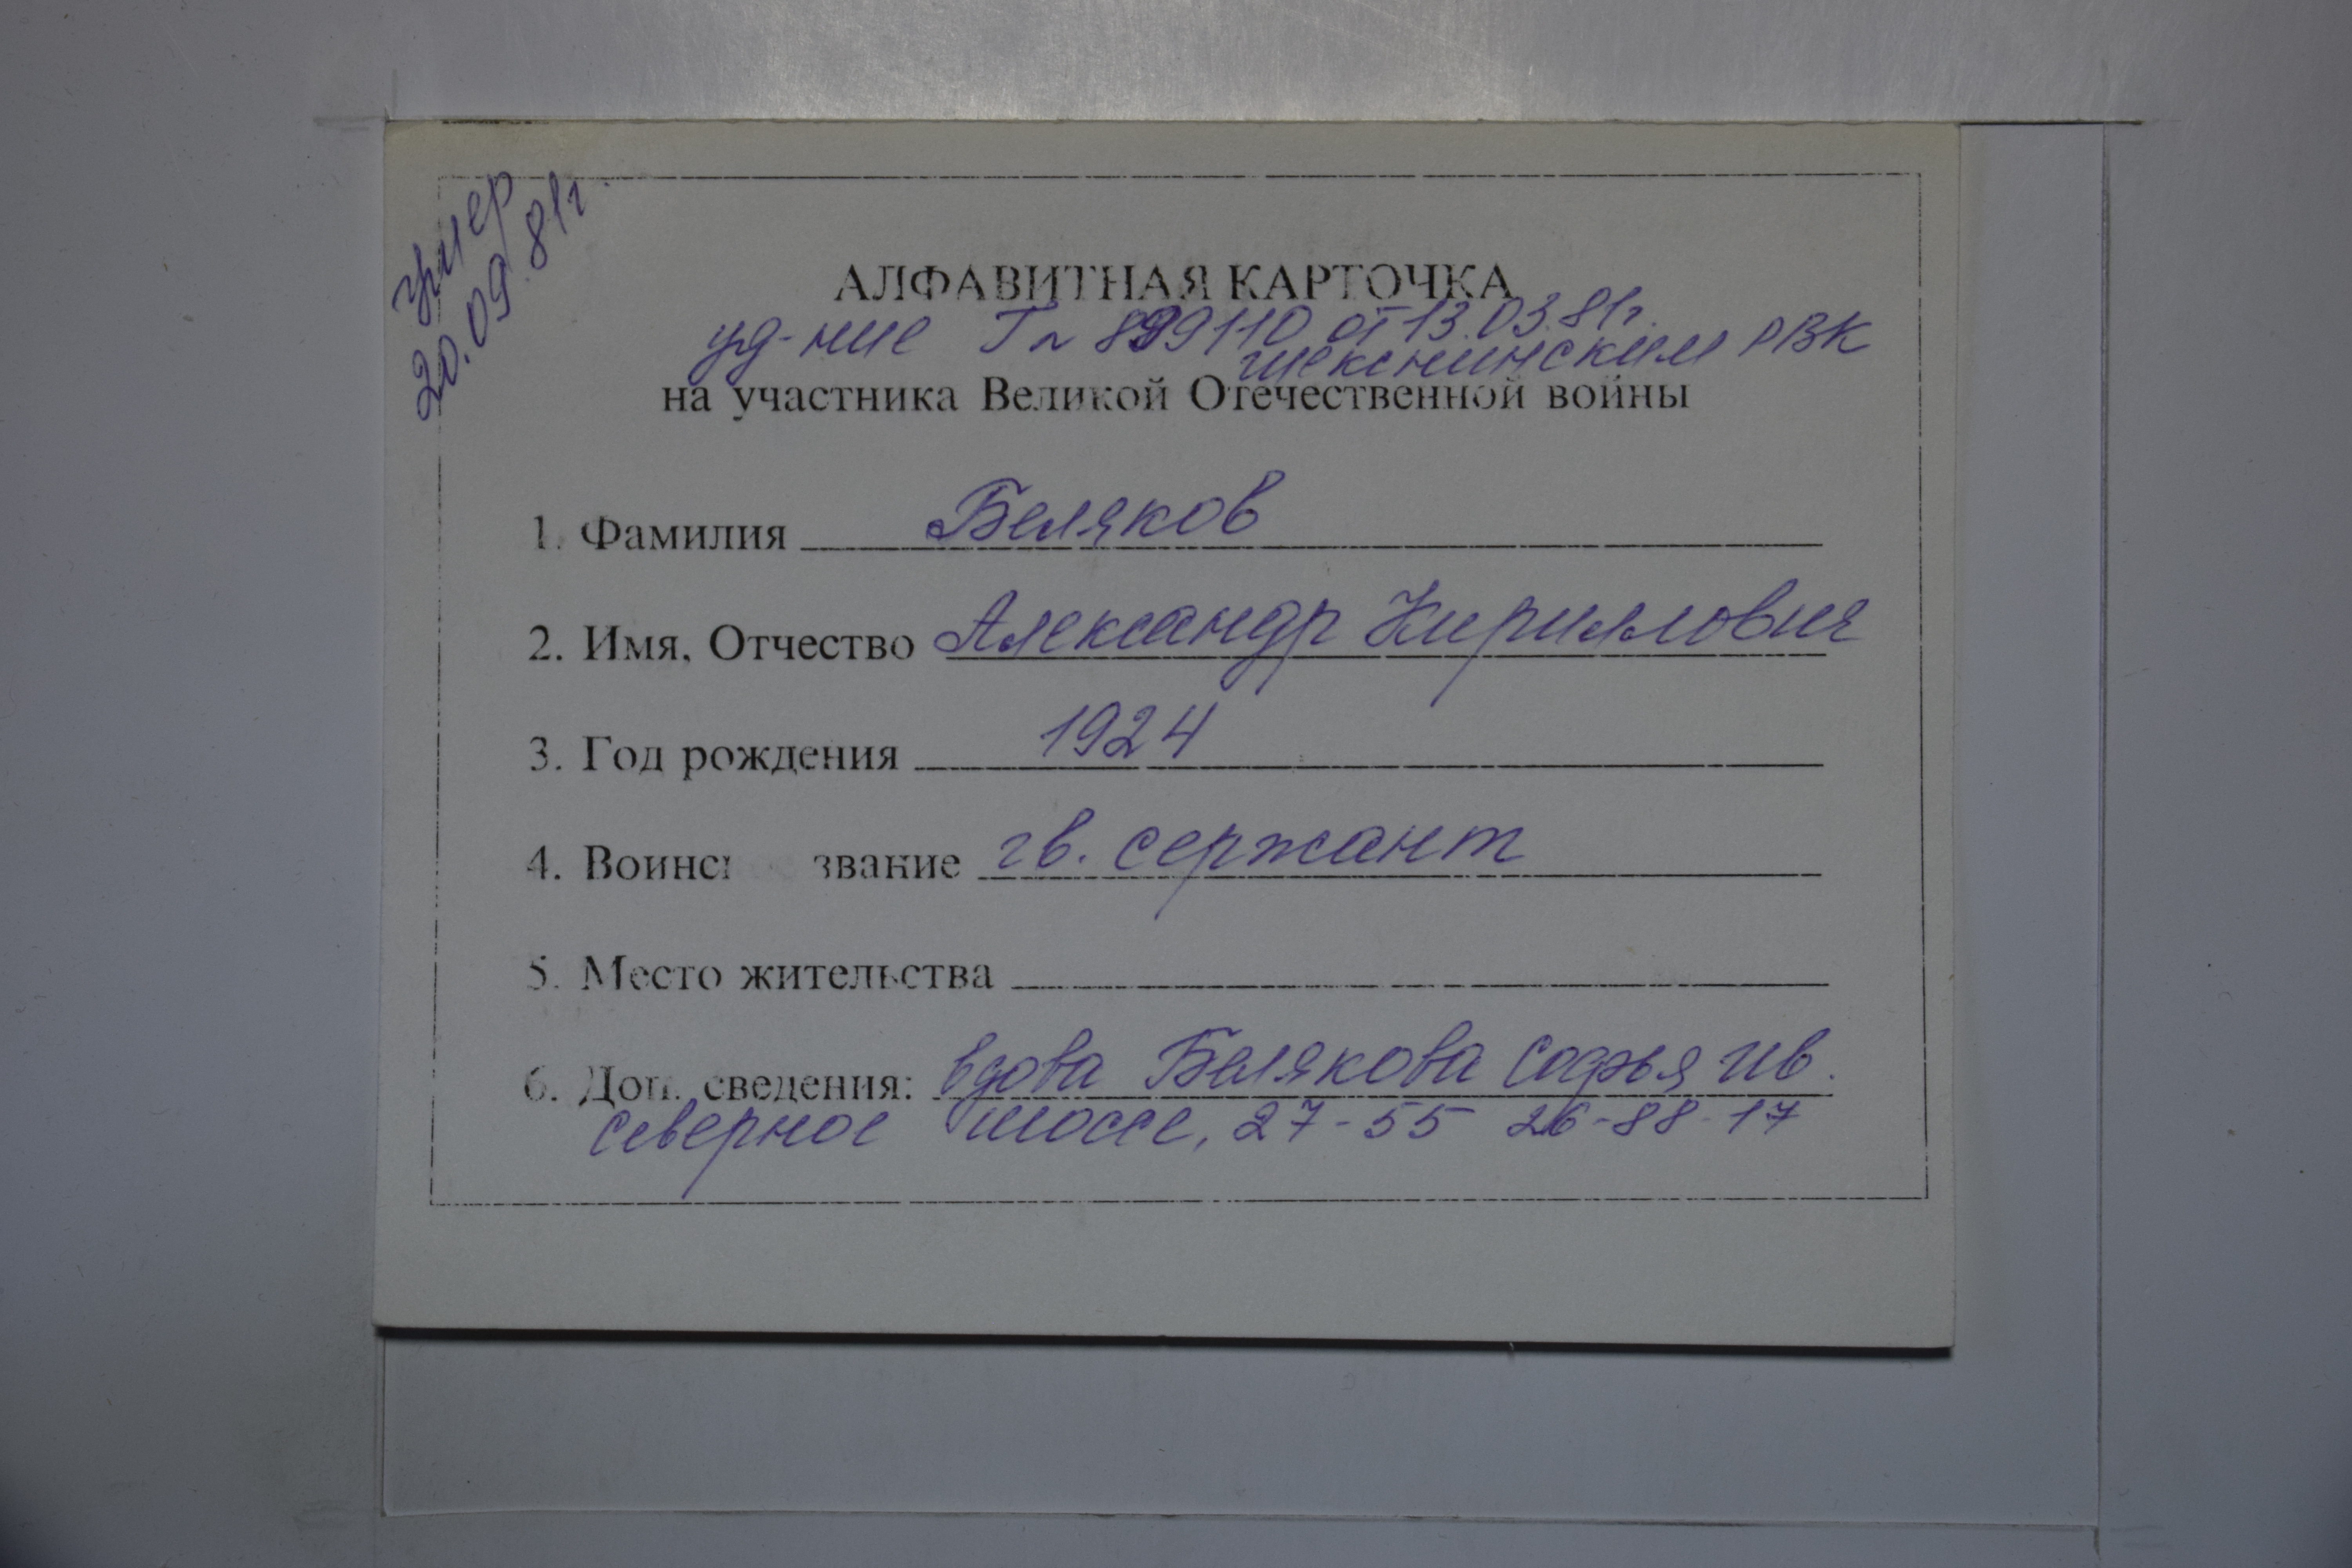 умер
20.09.81г.
АЛФАВИТНАЯ КАРТОЧКА
уд-ние Г № 899110 от 13.03.81г.
шекснинским РВК
на участника Великой Отечественной войны
1. Фамилия Беляков
2. Имя, Отчество Александр Кириллович
3. Год рождения 1924
4. Воинское звание гв. сержант
5. Место жительства
6. Доп. сведения: вдова Белякова Софья Ив.
северное шоссе, 27-55 26-88-17